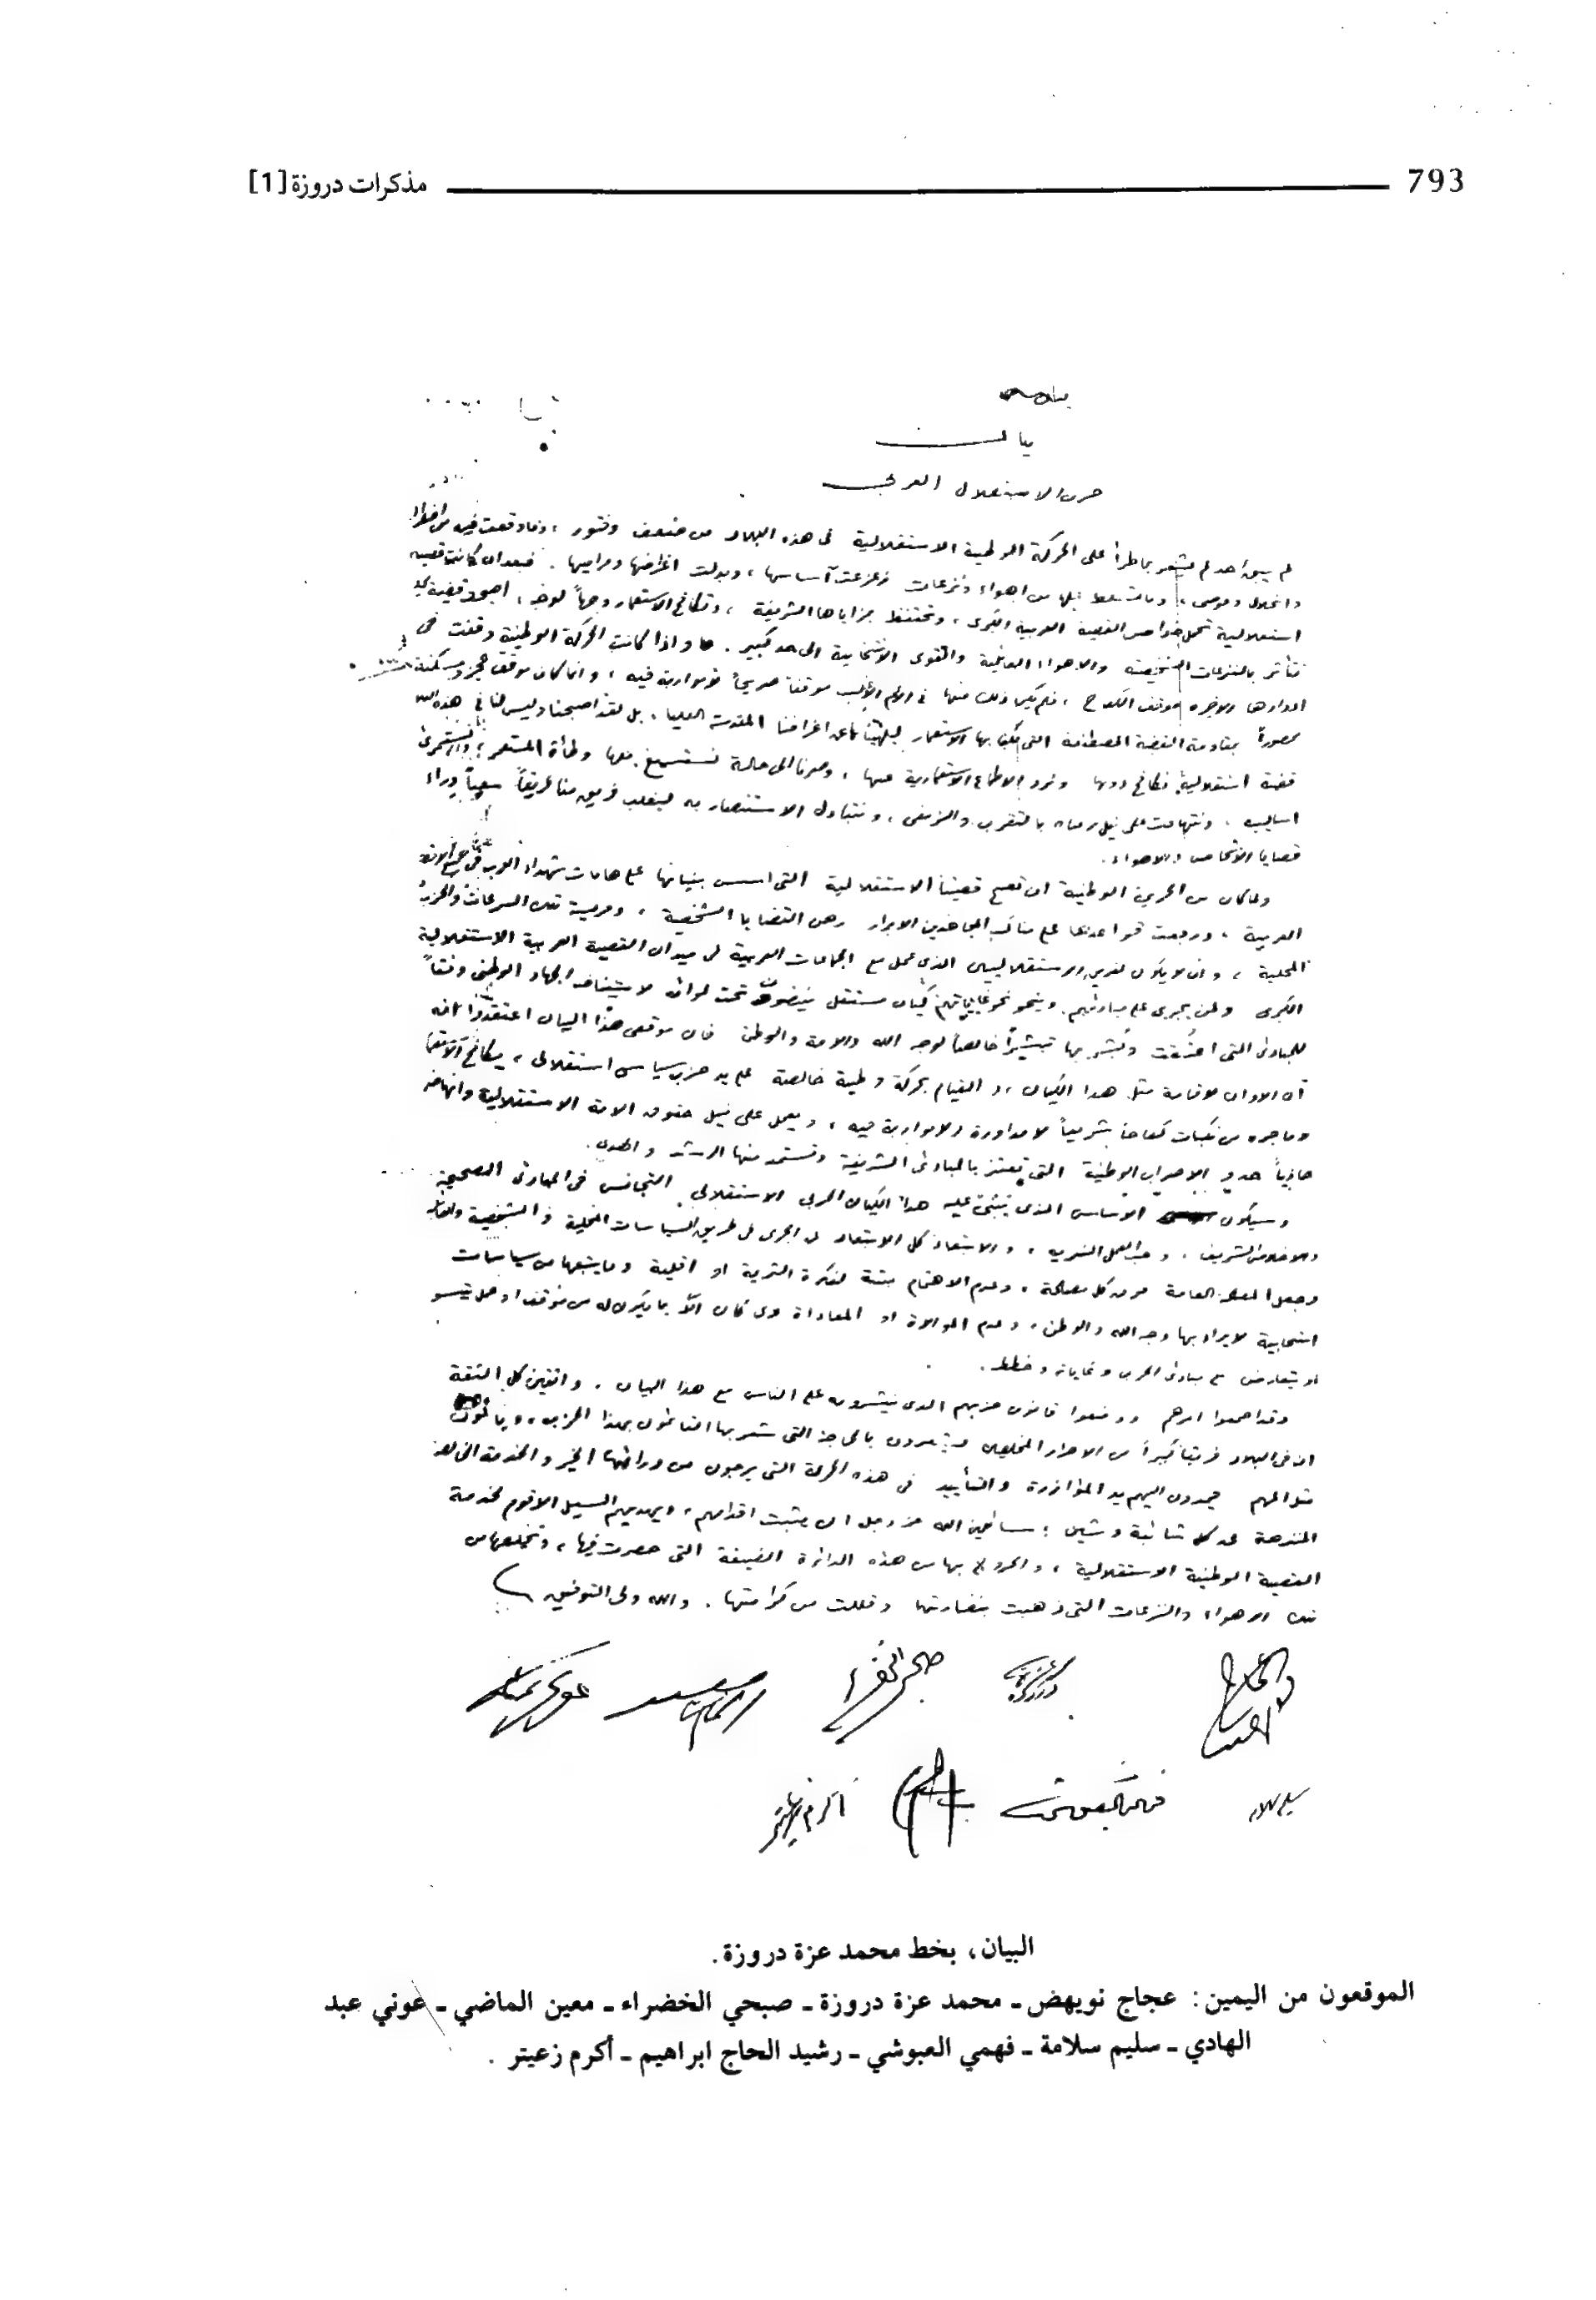 793
مذكرات دروزة [1]
بيان
حزب الاستقلال العربي
لم يبق أحد لم يشعر بما طرأ على الحركة الوطنية الاستقلالية في هذه البلاد من ضعف وفتور ، وما وقعت فيه من اضطراب
وانحلال وفوضى ، وما تسلط عليها من اهواء ونزعات زعزعت أساسها ، وبدلت اغراضها ومراميها . فبعد ان كانت قضية
استقلالية تحمل خواص القضية العربية الكبرى ، وتحتفظ بمزاياها الشريفة ، وتكافح الاستعمار وجهاً لوجه ، اصبحت قضية
تتأثر بالنزعات الشخصية والاهواء العائلية والقوى الانتخابية الى حد كبير . واذا كانت الحركة الوطنية وقفت في
موقف الكفاح ، فلم يكن ذلك منها في الاغلب موقفاً صريحاً لا مواربة فيه ، وانما كان موقف عجز ومسكنة
محصوراً بمقاومة القضية المصطنعة التي بها الاستعمار ليلهينا عن اغراضنا المقدسة العليا . بل لقد اصبحنا وليس لنا في هذه البلاد
قضية استقلالية نكافح دونها ونرد الاطماع الاستعمارية عنها ، وصرنا الى حالة نستسيغ معها وطأة المستعمر ونستمرئ
اساليبه . ونتهافت على نيل رضاه بالتقرب والزلفى ، ونتبادل الاستنصار به ليغلب فريق منا فريقاً سعياً وراء
قضايا الاشخاص والاهواء .
ولما كان من الوطنية ان تصبح قضيتنا الاستقلالية التي اسس بنيانها على هامات شهداء العرب في جميع الاقطار
العربية ، ورفعت قواعدها على مناكب المجاهدين الابرار رهن القضايا الشخصية ، وفريسة تلك النزعات
المحلية ، وان لا يكون لفريق الاستقلاليين الذي عمل مع الجماعات العربية في ميدان القضية العربية الاستقلالية
الكبرى ولمن يجري على مبادئهم وينحو نحو غاياتهم كيان مستقل ينضوون تحت لوائه لاستئناف الجهاد الوطني وفقاً
للمبادئ التي اعتنقت وبشر بها تبشيراً خالصاً لوجه الله والامة والوطن فان موقعي هذا البيان اعتقدوا انه
آن الاوان لاقامة مثل هذا الكيان ، والقيام بحركة وطنية خالصة على يد حزب سياسي استقلالي ، يكافح
وما جره من نكبات كفاحاً شريفاً لا مداورة ولا مواربة فيه ، ويعمل على نيل حقوق الامة الاستقلالية وانهاضها
حاذياً حذو الاحزاب الوطنية التي تعتز بالمبادئ الشريفة وتستمد منها الرشد والهدى .
وسيكون الاساس الذي يبتنى عليه هذا الكيان الحزبي الاستقلالي التجانس في المبادئ الصحيحة
والاخلاص الشريف ، وحب العمل النزيه ، والابتعاد كل الابتعاد عن الجري في طريق السياسات المحلية والشخصية والعائلية
وجعل المصلحة العامة فوق كل مصلحة ، وعدم الاهتمام بتة لفكرة اكثرية او اقلية وما يتبعها من سياسات
انتخابية لا يراد بها وجه الله والوطن ، وعدم الموالاة او المعاداة لاي كان الا بما يكون له من موقف او عمل يتسق
او يتعارض مع مبادئ الحزب وغاياته وخططه .
وقد اجمعوا امرهم ووضعوا قانون حزبهم الذي ينشرونه على الناس مع هذا البيان . واثقين كل الثقة
ان في البلاد فريقاً كبيراً من الاحرار المخلصين يشعرون بالحاجة التي شعر بها القائمون بهذا الحزب ،
يمدون اليهم يد المؤازرة والتأييد في هذه الحركة التي يرجون من ورائها الخير والخدمة الخالصة
المنزهة عن كل شائبة وشين ؛ سائلين الله عز وجل ان يثبت اقدامهم ، ويهديهم السبيل الاقوم لخدمة
القضية الوطنية الاستقلالية ، والخروج بها من هذه الدائرة الضيقة التي حصرت فيها ، وتخليصها من
تلك الاهواء والنزعات التي ذهبت بنضارتها وقللت من كرامتها . والله ولي التوفيق
عجاج نويهض
عزة دروزة
صبحي الخضراء
معين الماضي
عوني عبد الهادي
سليم سلامة
فهمي العبوشي
أكرم زعيتر
البيان، بخط محمد عزة دروزة.
الموقعون من اليمين: عجاج نويهض ـ محمد عزة دروزة ـ صبحي الخضراء ـ معين الماضي ـ عوني عبد
الهادي ـ سليم سلامة ـ فهمي العبوشي ـ رشيد الحاج ابراهيم ـ أكرم زعيتر .